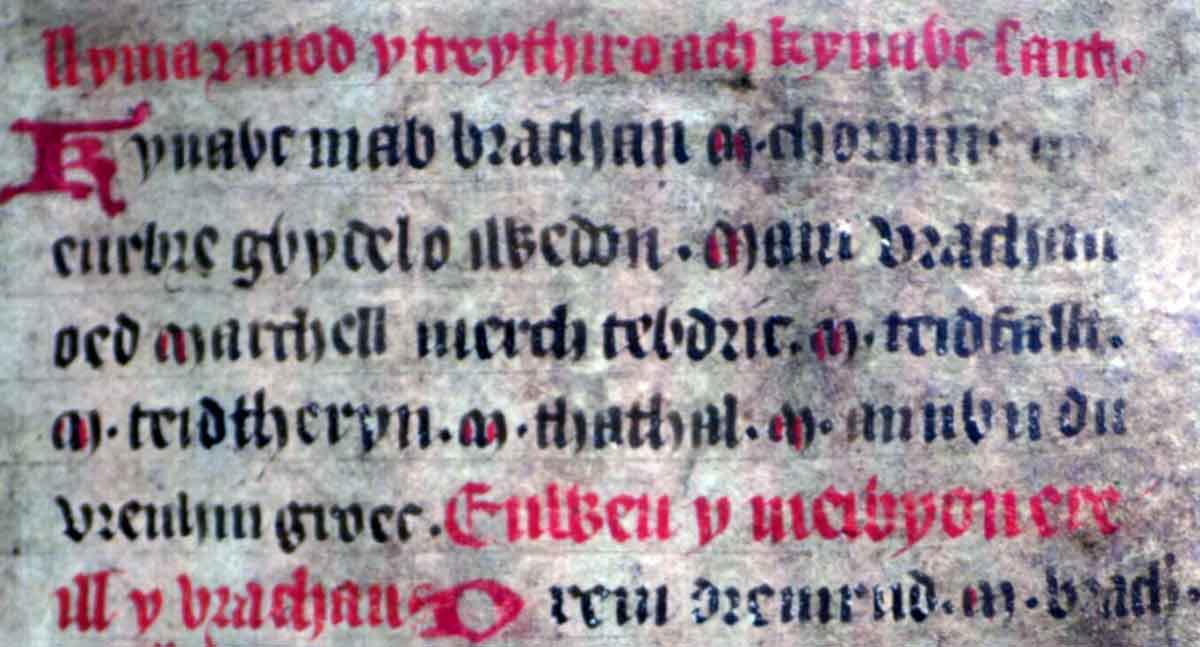 llyma ymod y treythir o ach kynaỽc sant.
Kynaỽc mab brachan M. chormuc
eurbre gỽydel o iỽerdon. Mam vrachan
oed Marchell merch teỽdric. M. teidfallt.
M. teidtheryn. M. thathal. M. annỽn du
vrenhin groec. Enỽeu y meibyon ere
ill y vrachan D rein dremrud. M. brach